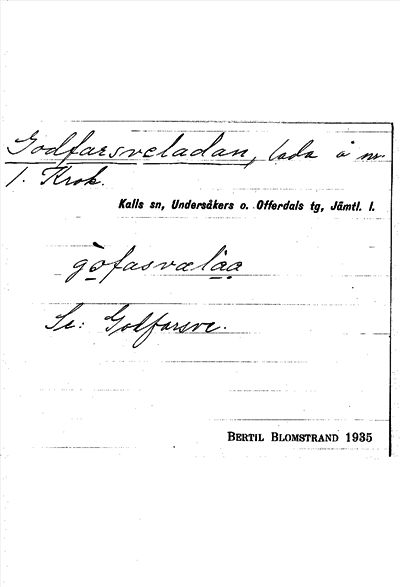 Godfarsveladan, lada å nr
1. Krok.
Kalls sn, Undersåkers o. Offerdals tg, Jämtl. l.
gòfasvælàa
Se: Godfarsve.
BERTIL BLOMSTRAND 1935